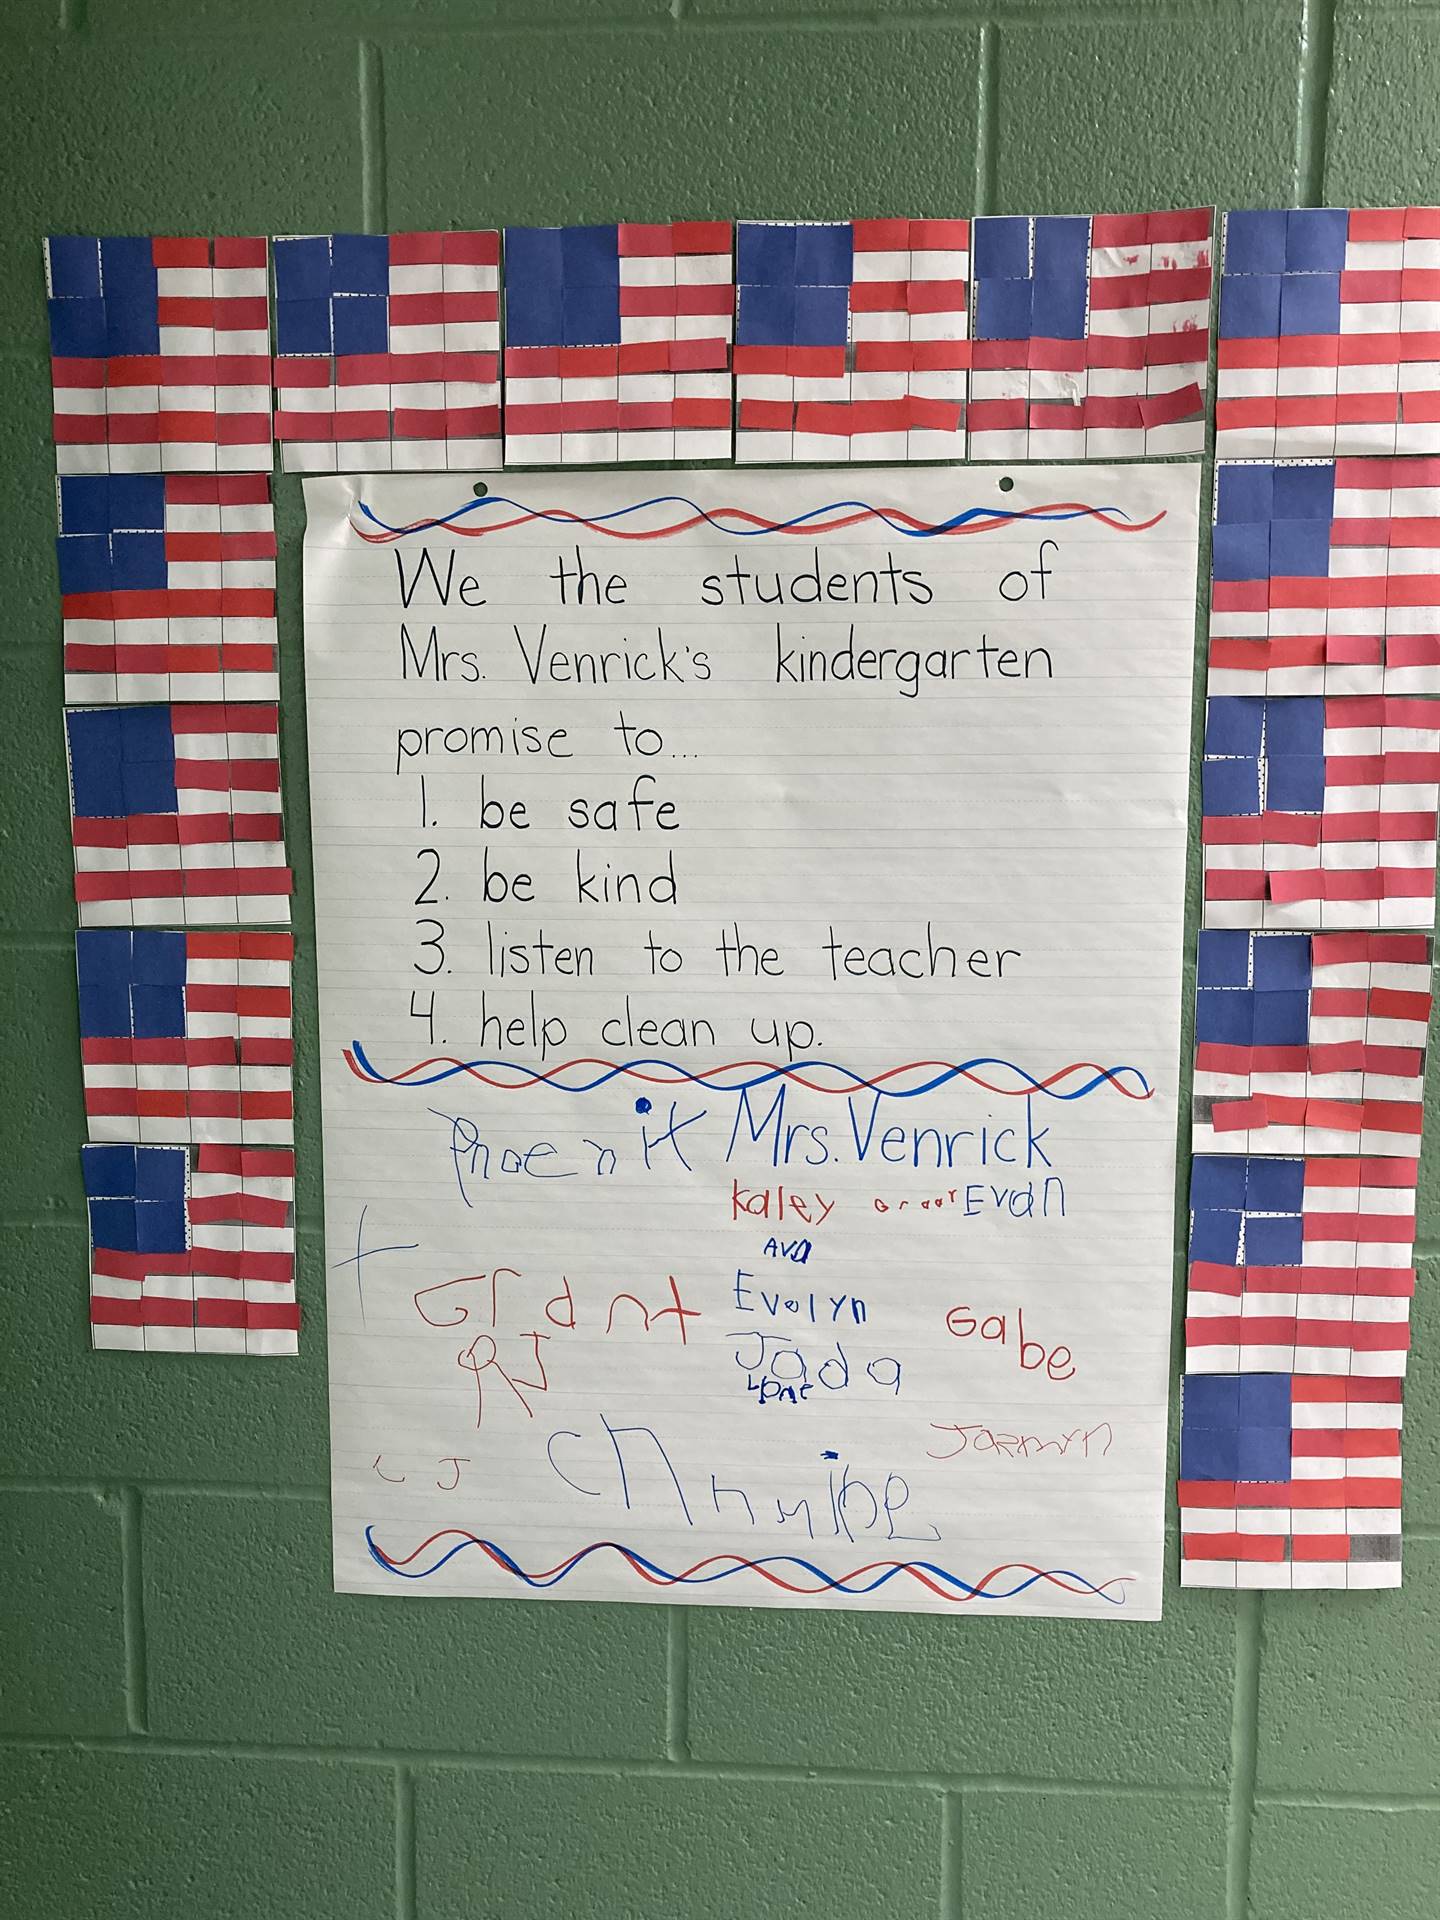 We the students of
Mrs. Venrick's kindergarten
promise to...
1. be safe
2. be kind
3. listen to the teacher
4. help clean up.
Mrs. Venrick
Kaley Evan
Ava
Grant Evelyn Gabe
RJ Jada
Jazmyn